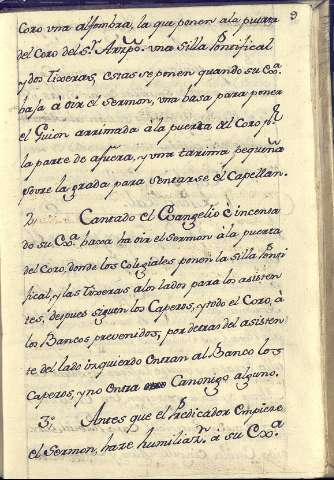 9
Coro vna alfombra, la que ponen a la puerta
del Coro del Sr. Arzpo. vna Silla Pontifical
y dos Tixeras, estas se ponen quando su Exa.
baja à oir el Sermon, vna basa para poner
el Guion arrimada à la puerta del Coro pr.
la parte de afuera, y vna tarima pequeña
sovre la grada para sentarse el Capellan.
2. Cantado el Evangelio è incensa
do su Exa. baxa ha oir el Sermon à la puerta
del Coro, donde los Colegiales ponen la Silla Ponti
fical, y las Tixeras a los lados para los asisten
tes, despues siguen los Caperos, y todo el Coro, à
los Bancos prevenidos, por detras del asisten
te del lado izquierdo entran al Banco los
Caperos, y no entra Canonigo alguno.
3. Antes que el Predicador empiece
el Sermon, haze humiliazn. à su Exa.